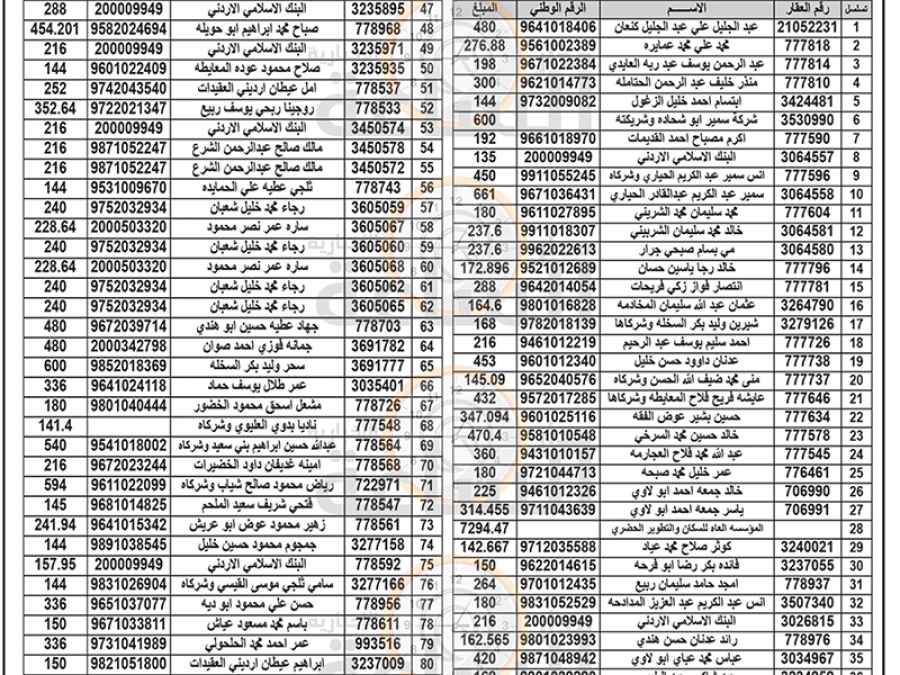 تسلسل رقم العقار الاســـــم الرقم الوطني المبلغ
1 21052231 عبد الجليل علي عبد الجليل كنعان 9641018406 480
2 777818 محمد علي محمد عمايره 9561002389 276.88
3 777814 عبد الرحمن يوسف عبد ربه العابدي 9671022384 198
4 777810 منذر خليف عبد الرحمن الختامله 9621014773 300
5 3424481 ابتسام احمد خليل الزغول 9732009082 144
6 3530990 شركة سمير ابو شحاده وشريكته 600
7 777590 اكرم مصباح احمد القديمات 9661018970 192
8 3064557 البنك الاسلامي الاردني 200009949 135
9 777596 انس سمير عبد الكريم الحياري وشركاه 9911055245 450
10 3064558 سمير عبد الكريم عبدالقادر الحياري 9671036431 661
11 777604 محمد سليمان محمد الشربني 9611027895 180
12 3064581 خالد محمد سليمان الشربيني 9911018307 237.6
13 3064580 مي بسام صبحي جرار 9962022613 237.6
14 777796 خالد رجا ياسين حسان 9521012689 172.896
15 777781 انتصار فواز زكي فريحات 9642014054 288
16 3264790 عثمان عبد الله سليمان المخادمه 9801016828 164.6
17 3279126 شيرين وليد بكر السخله وشركاها 9782018139 168
18 777726 احمد سليم يوسف عبد الرحيم 9461012219 216
19 777738 عدنان داوود حسن خليل 9601012340 453
20 777737 منى محمد ضيف الله الحسن وشركاه 9652040576 145.09
21 777646 عايشه فريح فلاح المعايطه وشركاها 9572017285 432
22 777634 حسين بشير عوض الفقه 9601025116 347.094
23 777578 خالد حسين محمد السرخي 9581010548 470.4
24 777545 عبد الله محمد فلاح العجارمه 9431010157 360
25 776461 عمر خليل محمد صبحه 9721044713 180
26 706990 خالد جمعه احمد ابو لاوي 9461012326 225
27 706991 ياسر جمعه احمد ابو لاوي 9711043639 314.455
28 المؤسسه العامه للسكان والتطوير الحضري 7294.47
29 3240021 كوثر صلاح محمد عياد 9712035588 142.667
30 3237055 فائده بكر رضا ابو فرحه 9622014615 150
31 778937 امجد حامد سليمان ربيع 9701012435 264
32 3507340 انس عبد الكريم عبد العزيز المدادحه 9831052529 180
33 3026815 البنك الاسلامي الاردني 200009949 216
34 778976 رائد عدنان حسن هندي 9801023993 162.565
35 3034967 عباس محمد عباي ابو لاوي 9871048942 420
47 3235895 البنك الاسلامي الاردني 200009949 288
48 778968 صباح محمد ابراهيم ابو حويله 9582024694 454.201
49 3235971 البنك الاسلامي الاردني 200009949 216
50 3235935 صلاح محمود عوده المعايطه 9601022409 144
51 778537 امل عيطان ارديني العقيدات 9742043540 252
52 778533 روجينا ربحي يوسف ربيع 9722021347 352.64
53 3450574 البنك الاسلامي الاردني 200009949 216
54 3450578 مالك صالح عبدالرحمن الشرع 9871052247 216
55 3450572 مالك صالح عبدالرحمن الشرع 9871052247 216
56 778743 ثلجي عطيه علي الحمايده 9531009670 144
57 3605059 رجاء محمد خليل شعبان 9752032934 240
58 3605067 ساره عمر نصر محمود 2000503320 228.64
59 3605060 رجاء محمد خليل شعبان 9752032934 240
60 3605068 ساره عمر نصر محمود 2000503320 228.64
61 3605062 رجاء محمد خليل شعبان 9752032934 240
62 3605065 رجاء محمد خليل شعبان 9752032934 240
63 778703 جهاد عطيه حسين ابو هندي 9672039714 480
64 3691782 جمانه فوزي احمد صوان 2000342798 480
65 3691777 سحر وليد بكر السخله 9852018369 600
66 3035401 عمر طلال يوسف حماد 9641024118 336
67 778726 مشعل اسحق محمود الخضور 9801040444 180
68 777548 ناديا بدوي العليوي وشركاه 141.4
69 778564 عبدالله حسين ابراهيم بني سعيد وشركاه 9541018002 540
70 778568 امينه غديفان داود الخضيرات 9672023244 216
71 722971 رياض محمود صالح شياب وشركاه 9611022099 594
72 778547 فتحي شريف سعيد الملحم 9681014825 145
73 778561 زهير محمود عوض ابو عريش 9641015342 241.94
74 3277158 جمجوم محمود حسين خليل 9891038545 144
75 778592 البنك الاسلامي الاردني 200009949 157.95
76 3277166 سامي ثلجي موسى القيسي وشركاه 9831026904 144
77 778956 حسن علي محمود ابو ديه 9651037077 336
78 778611 باسم محمد مسعود عياش 9671033811 150
79 993516 عمر احمد محمد الحلحولي 9731041989 336
80 3237009 ابراهيم عيطان ارديني العقيدات 9821051800 150